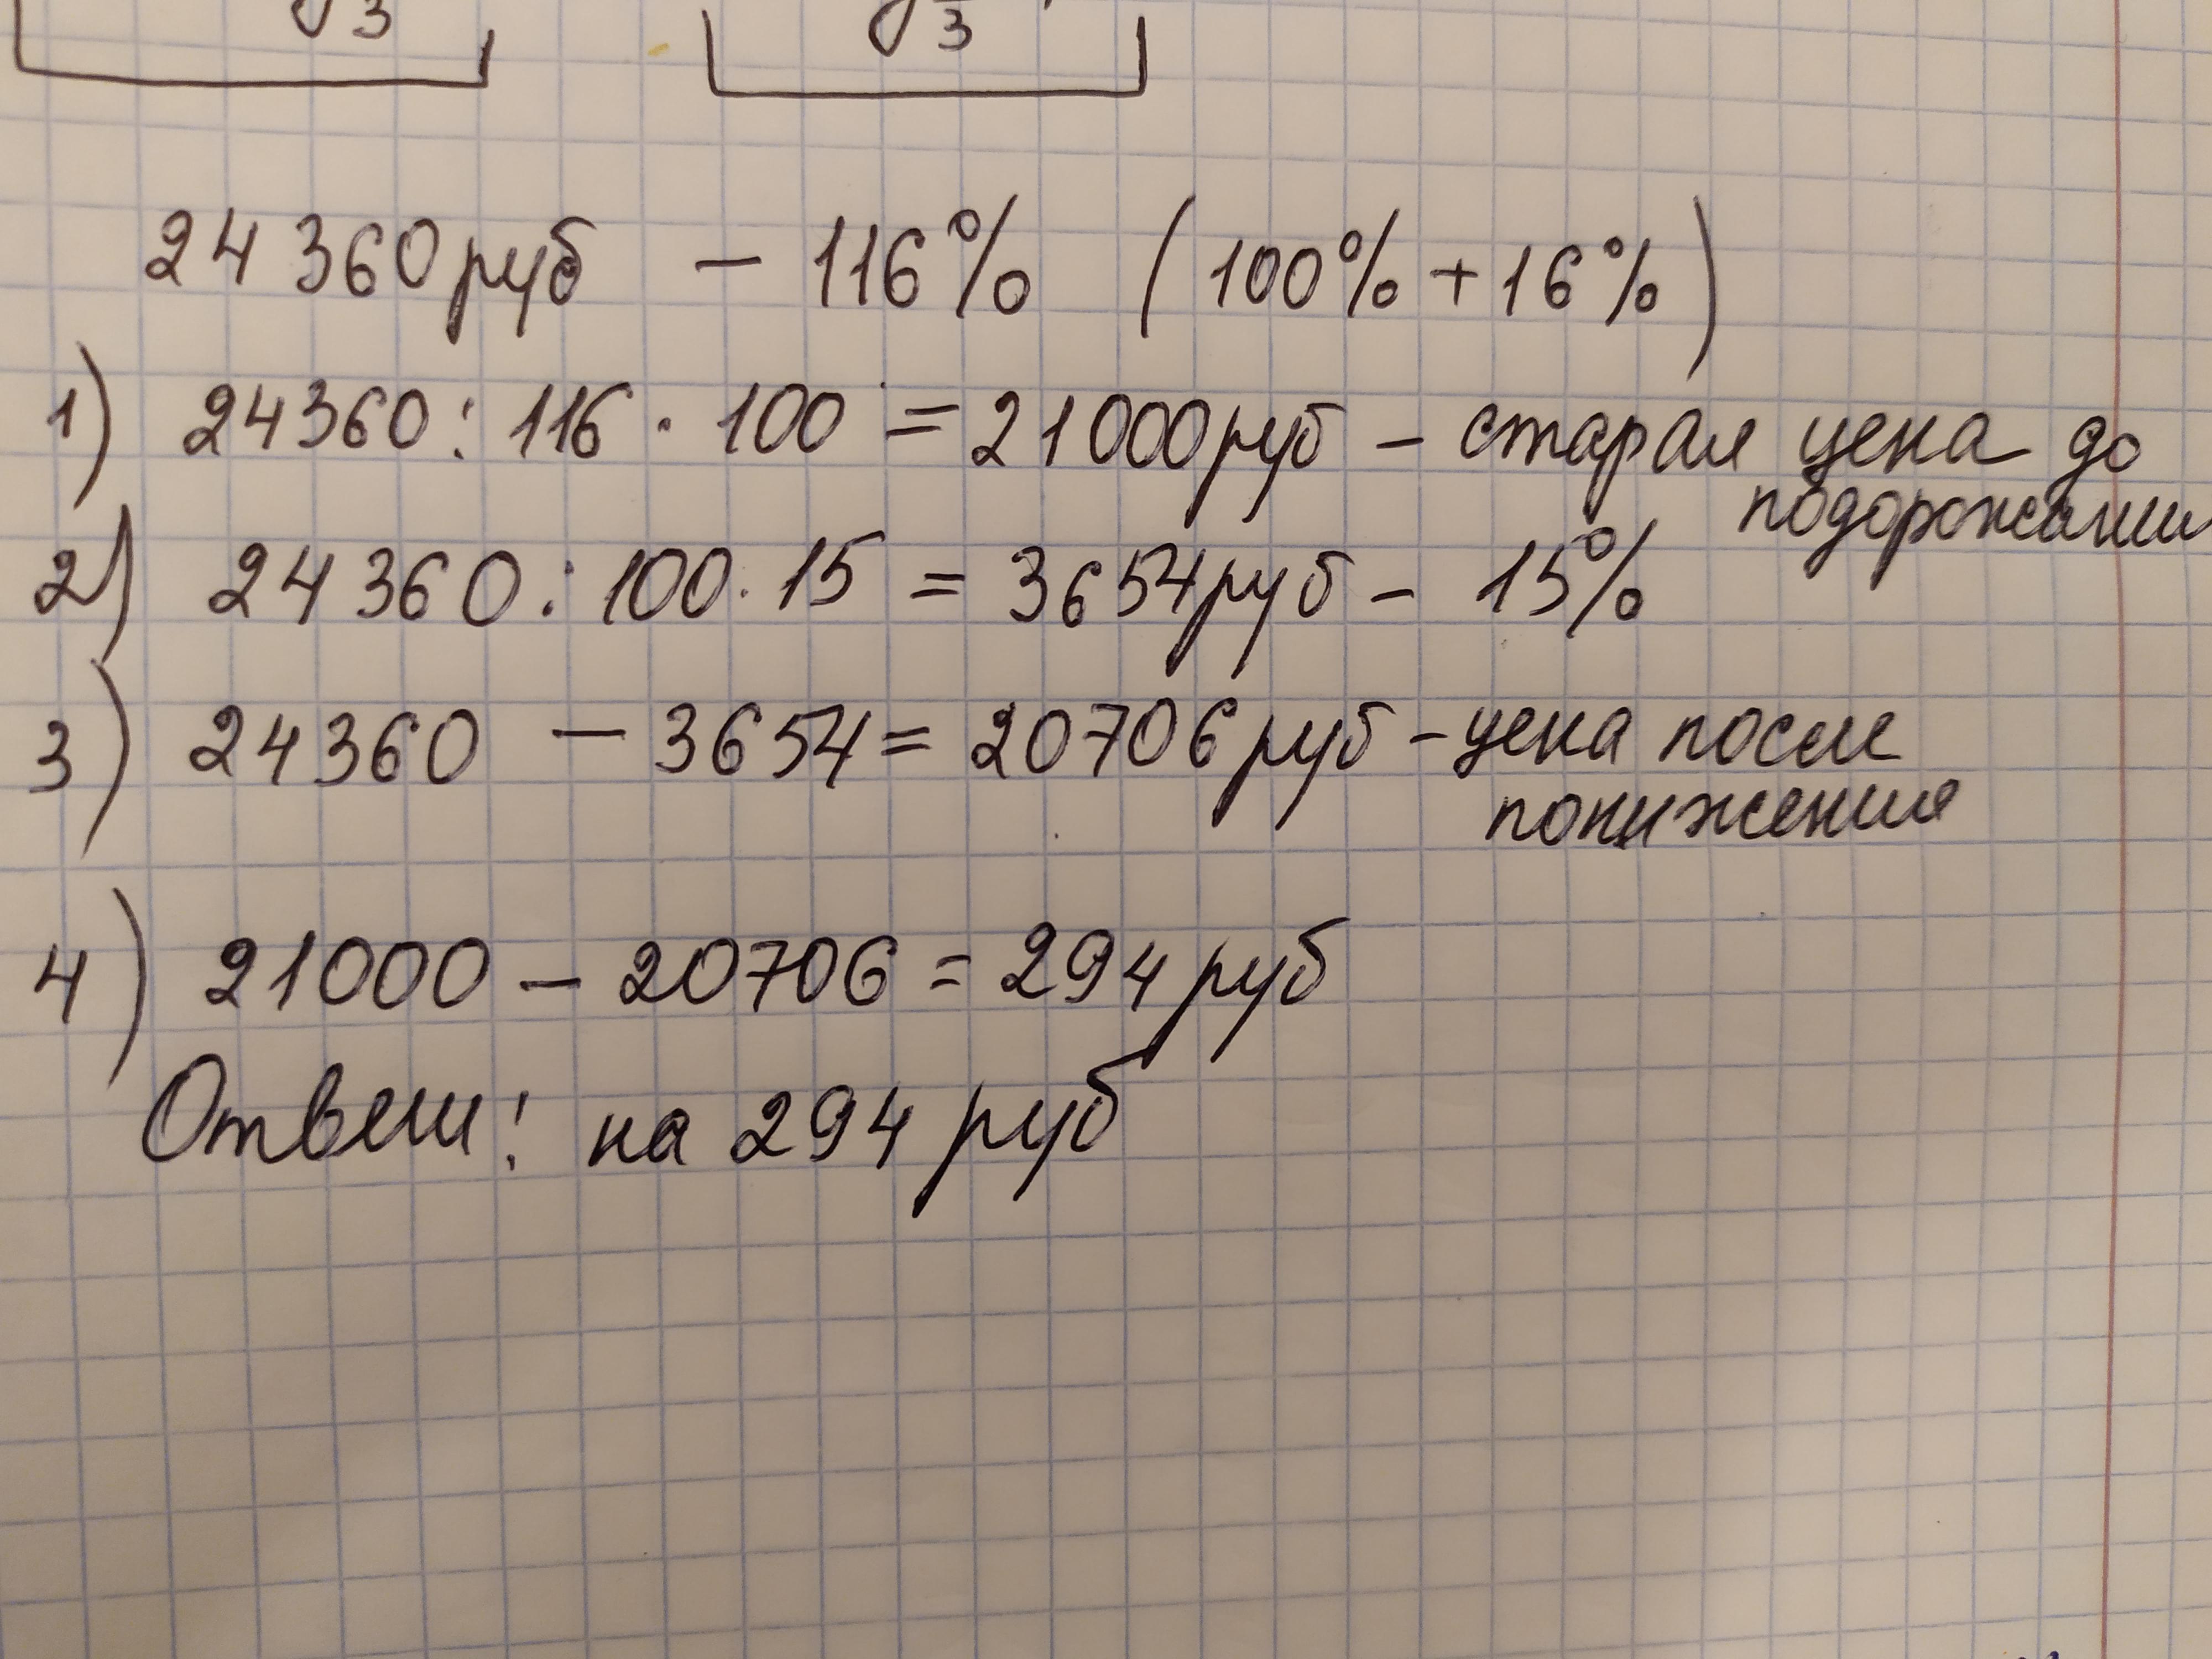 y 3 y 3
24 360 руб – 116% (100% + 16%)
1) 24360 : 116 · 100 = 21000 руб – старая цена до
подорожании
2) 24 360 : 100 · 15 = 3654 руб – 15%
3) 24360 – 3654 = 20706 руб – цена после
понижения
4) 21000 – 20706 = 294 руб
Ответ: на 294 руб